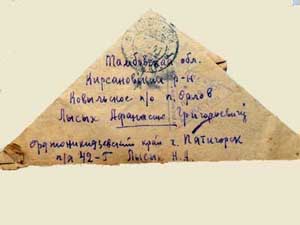 Тамбовская обл.
Кирсановский р-н
Ковыльское п/о п. Орлов
Лысих Афанасию Григорьевичу
Орджоникидзевский край г. Пятигорск
п/я 42-Г Лысих Н.А.